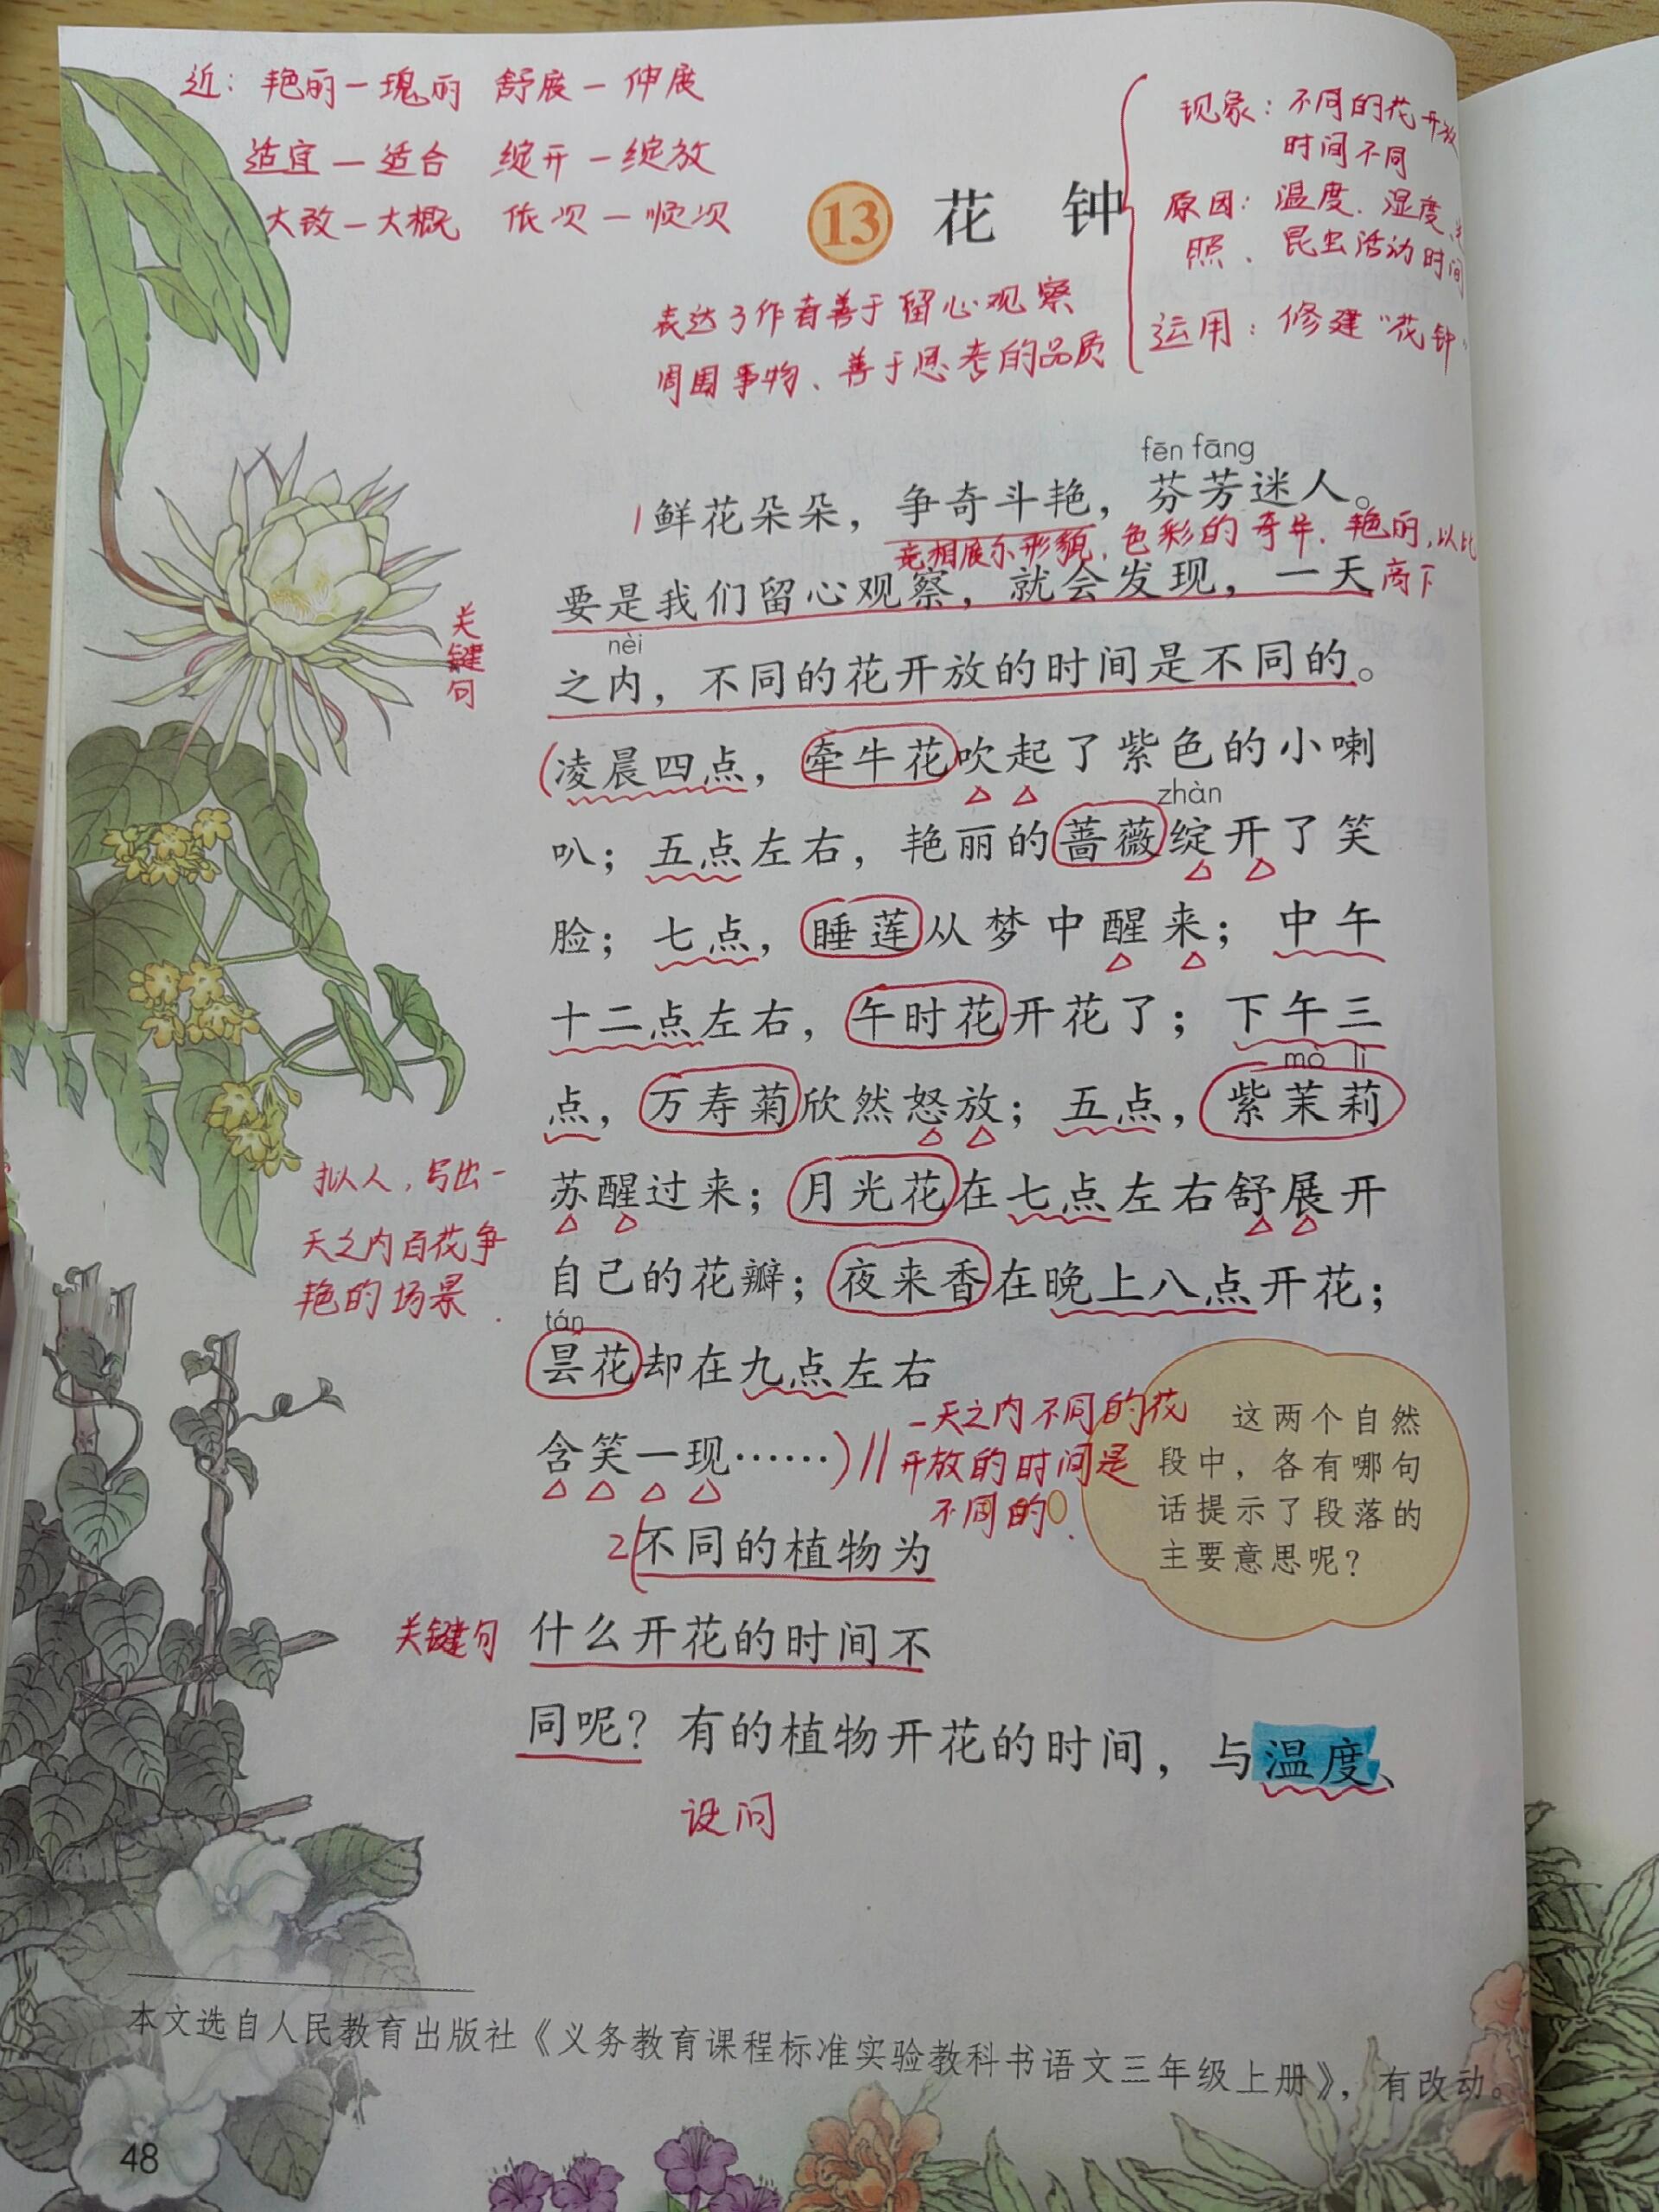 近：艳丽—瑰丽 舒展—伸展
适宜—适合 绽开—绽放
大致—大概 依次—顺次
13 花 钟
现象：不同的花开放
时间不同
原因：温度、湿度、光
照、昆虫活动时间
运用：修建“花钟”
表达了作者善于留心观察
周围事物、善于思考的品质
fēn fāng
1鲜花朵朵，争奇斗艳，芬芳迷人。
竞相展示形貌、色彩的奇异、艳丽，以比
要是我们留心观察，就会发现，一天
高下
关
键
句
nèi
之内，不同的花开放的时间是不同的。
(凌晨四点，牵牛花吹起了紫色的小喇
zhàn
叭；五点左右，艳丽的蔷薇绽开了笑
脸；七点，睡莲从梦中醒来；中午
十二点左右，午时花开花了；下午三
mò lì
点，万寿菊欣然怒放；五点，紫茉莉
苏醒过来；月光花在七点左右舒展开
自己的花瓣；夜来香在晚上八点开花；
拟人，写出一
天之内百花争
艳的场景.
tán
昙花却在九点左右
含笑一现……)//
一天之内不同的花
开放的时间是
不同的.
这两个自然
段中，各有哪句
话提示了段落的
主要意思呢？
2不同的植物为
关键句
什么开花的时间不
同呢？有的植物开花的时间，与温度、
设问
本文选自人民教育出版社《义务教育课程标准实验教科书语文三年级上册》，有改动。
48